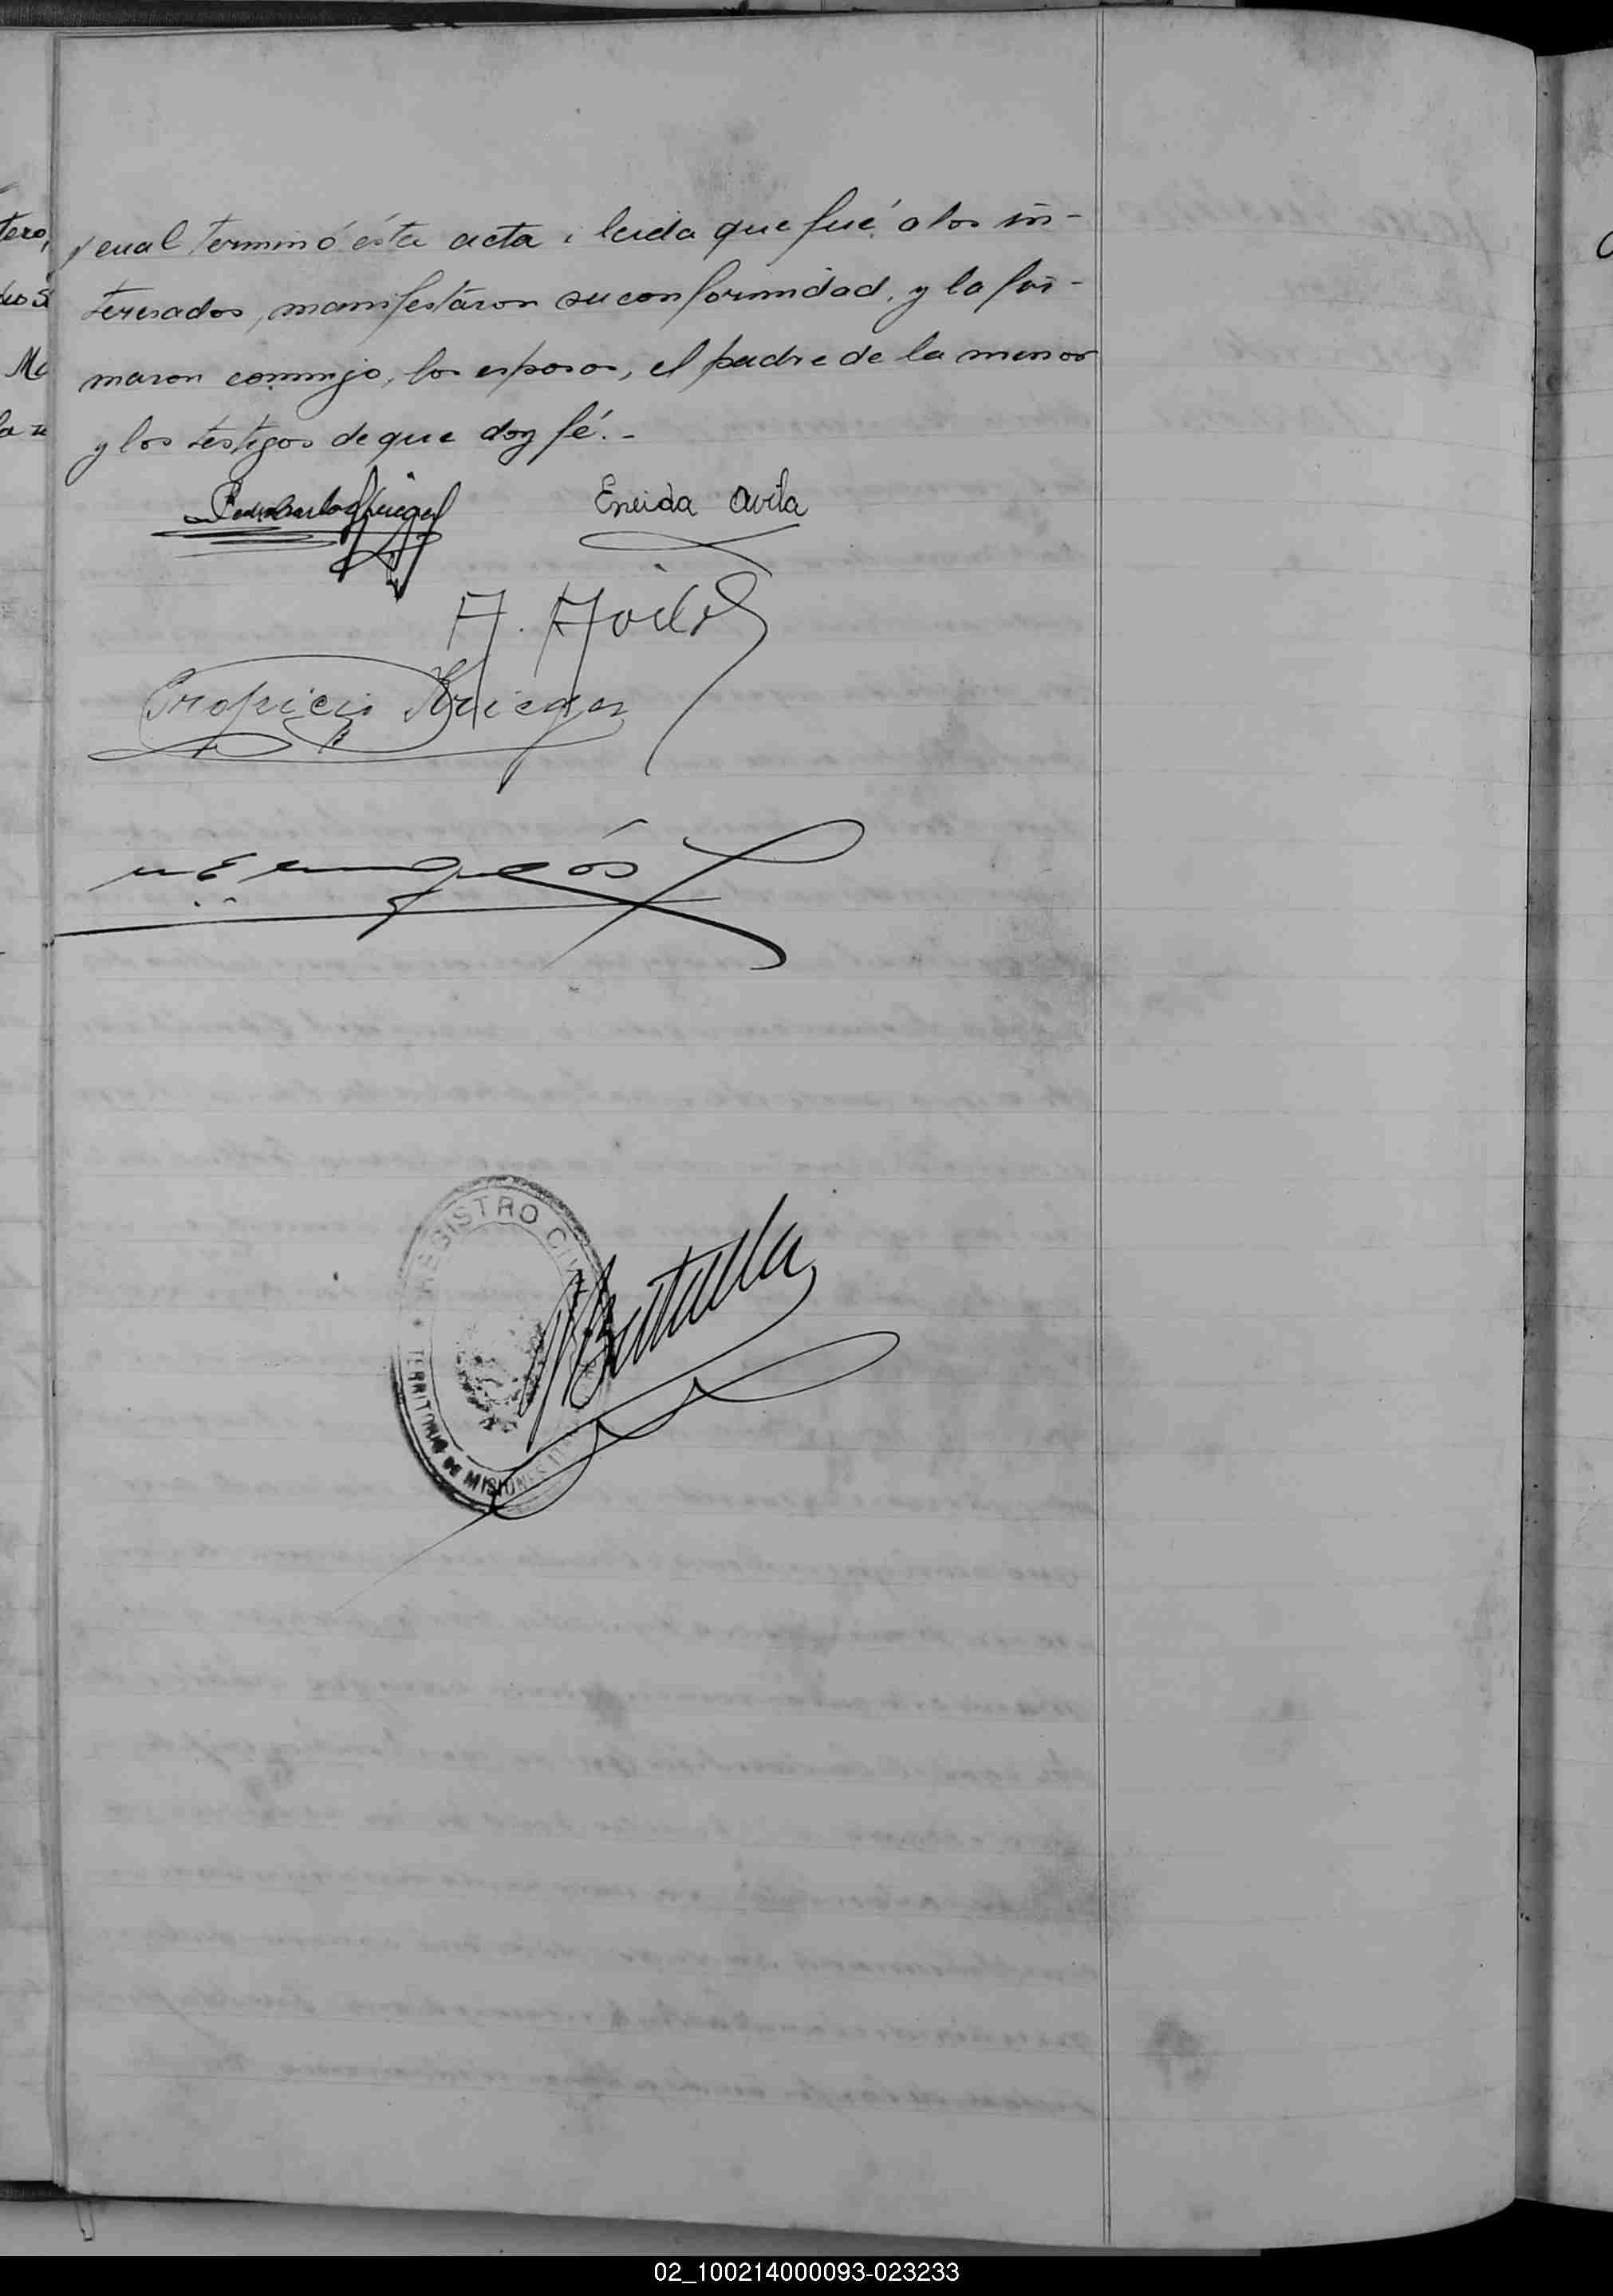 tero,
y cual terminó ésta acta, leida que fué a los in-
teresados, manifestaron su conformidad, y la fir-
maron conmigo, los esposos, el padre de la menor
y los testigos de que doy fé.-
Pedro Carlos Krieger
Eneida Avila
A. Avila
Propicio Krieger
REGISTRO CIVIL
TERRITORIO DE MISIONES
02_100214000093-023233